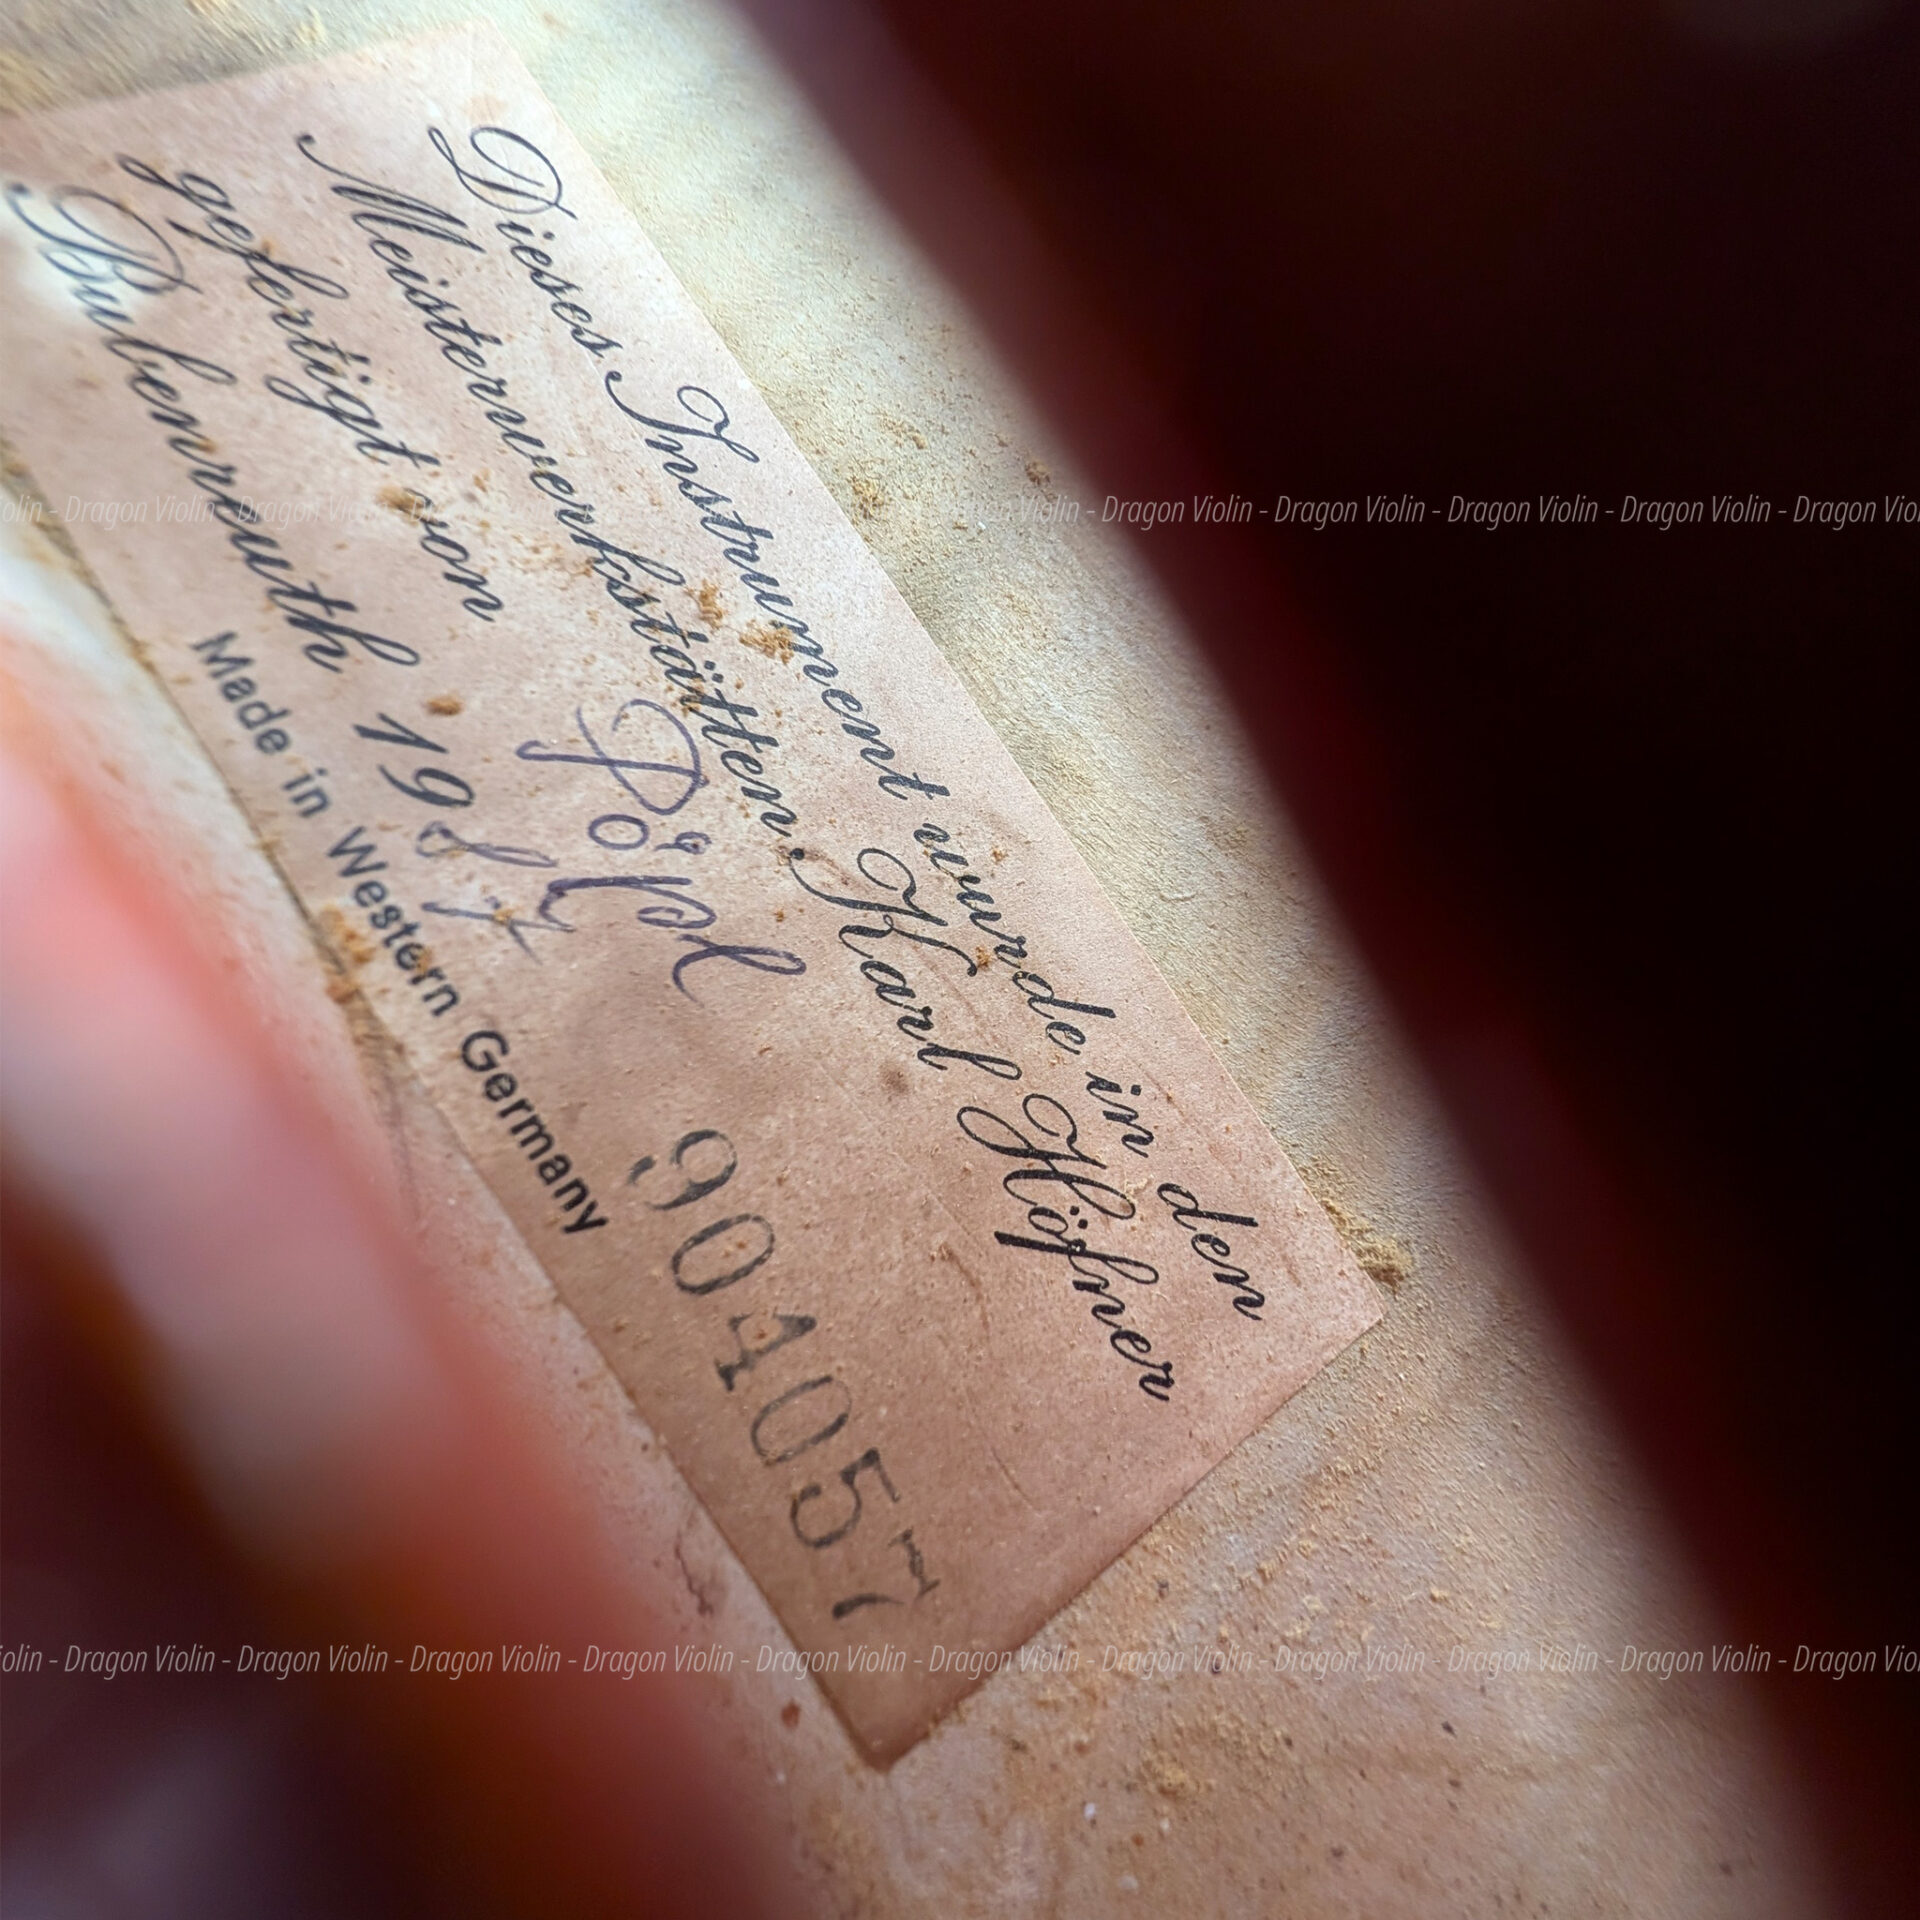 Dieses Instrument wurde in den
Meisterwerkstätten Karl Höfner
gefertigt von
Bubenreuth 1987
904057
Made in Western Germany
olin - Dragon Violin - Dragon Violin - Dragon Violin - Dragon Violin - Dragon Violin - Dragon Violin - Dragon Viol
olin - Dragon Violin - Dragon Violin - Dragon Violin - Dragon Violin - Dragon Violin - Dragon Violin - Dragon Violin - Dragon Violin - Dragon Violin - Dragon Violin - Dragon Viol